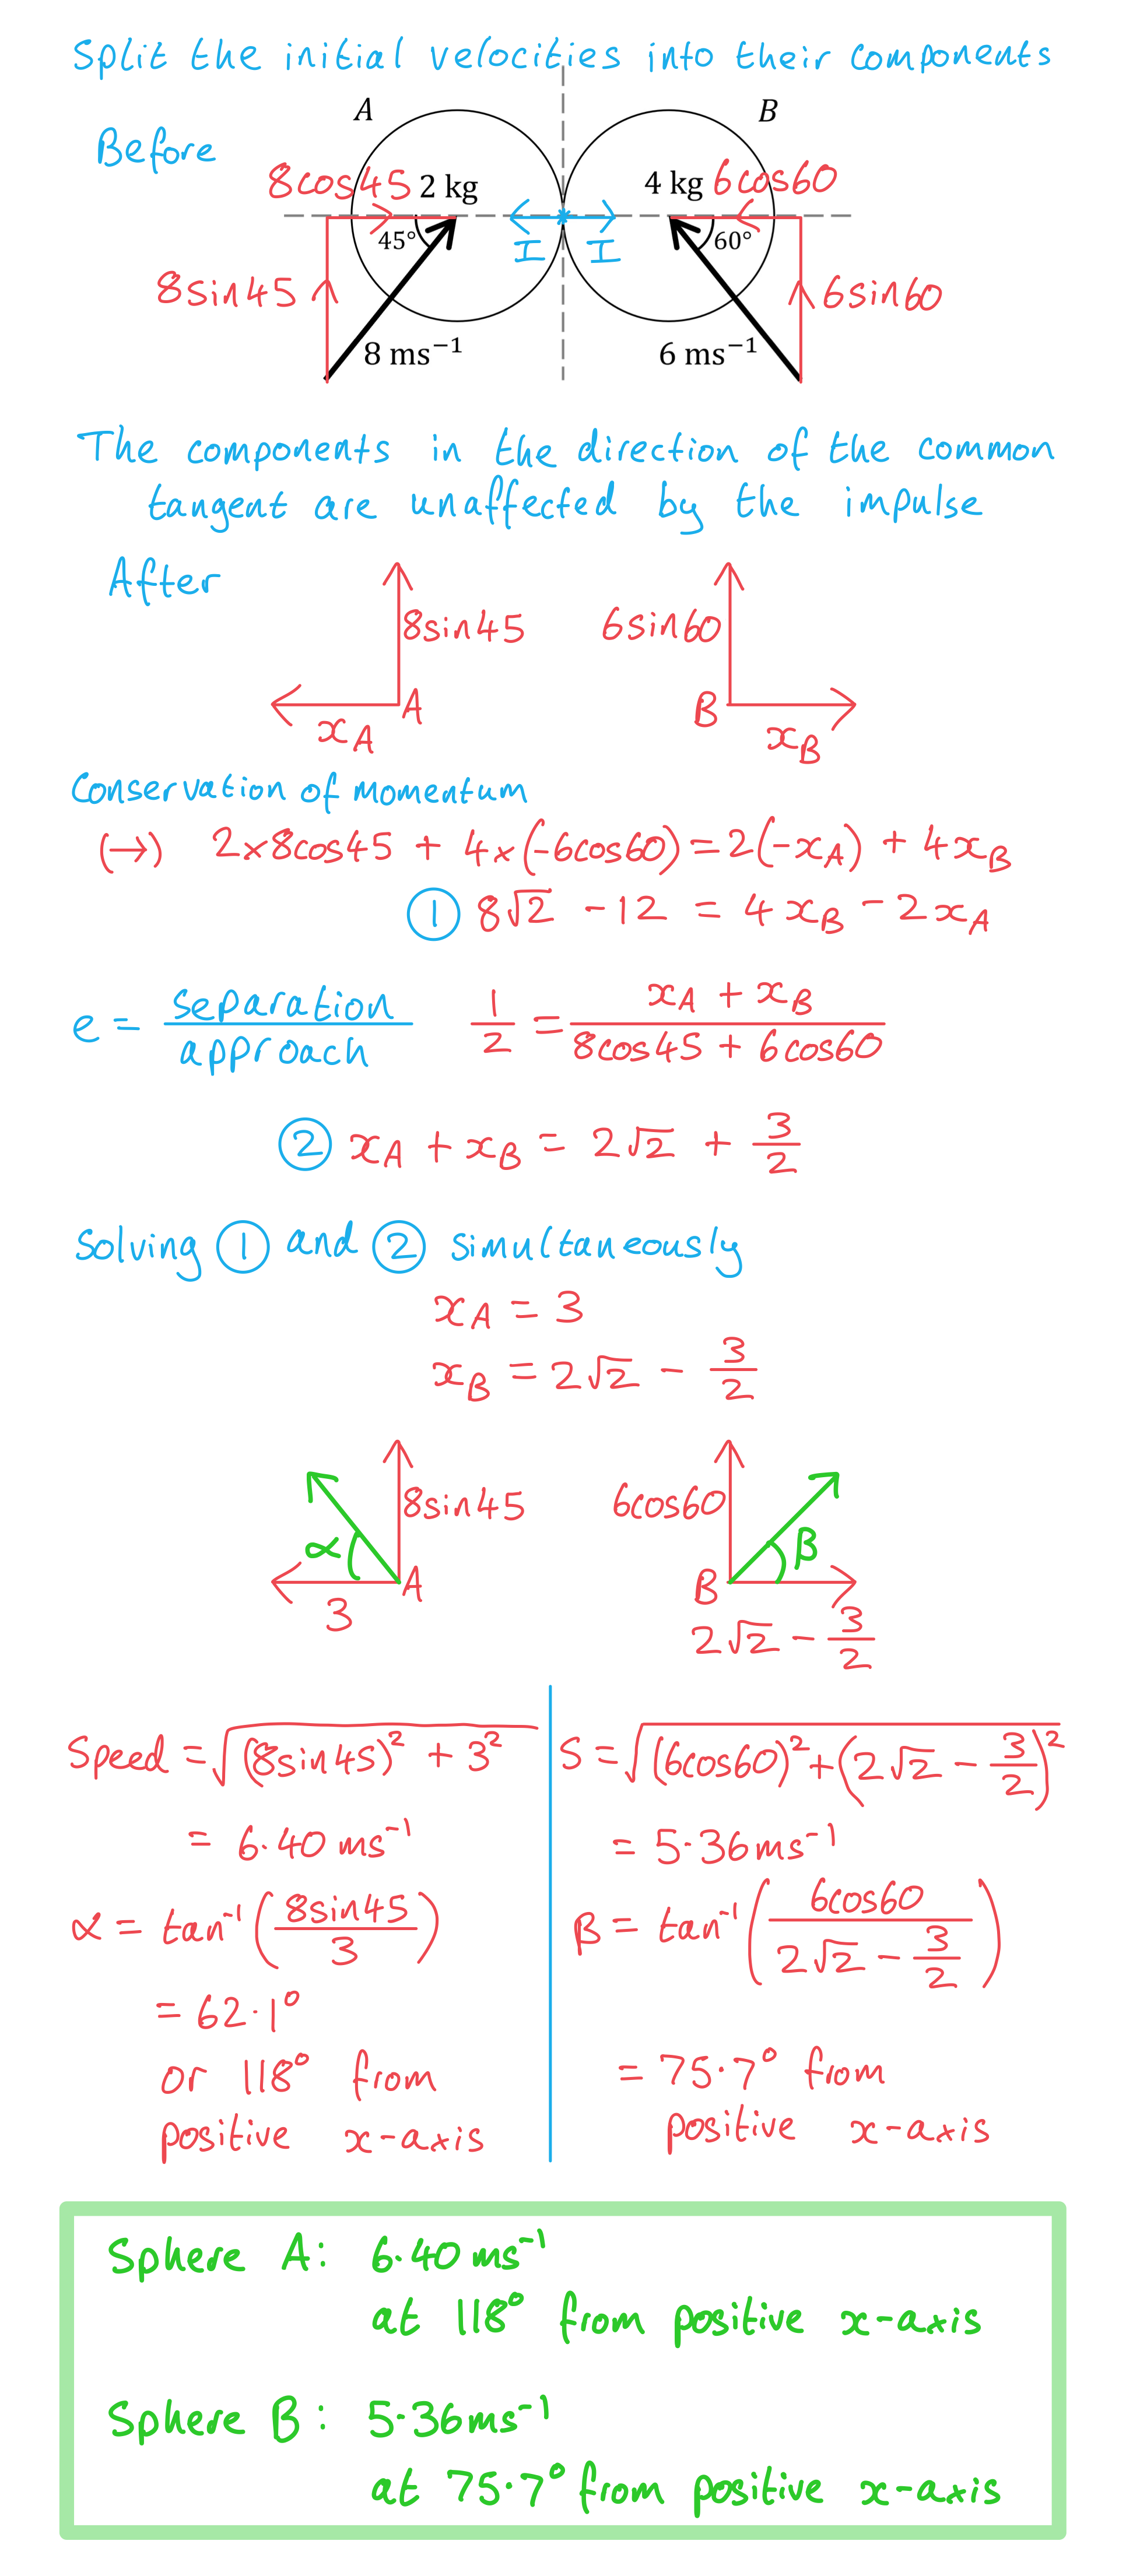 Split the initial velocities into their components
Before
A
B
8cos45 2 kg
4 kg 6cos60
45°
I I
60°
8sin45
6sin60
8 ms⁻¹
6 ms⁻¹
The components in the direction of the common
tangent are unaffected by the impulse
After
8sin45
6sin60
A
B
x_A
x_B
Conservation of momentum
(→) 2×8cos45 + 4×(-6cos60) = 2(-x_A) + 4x_B
① 8√2 - 12 = 4x_B - 2x_A
e = separation/approach 1/2 = (x_A + x_B)/(8cos45 + 6cos60)
② x_A + x_B = 2√2 + 3/2
Solving ① and ② simultaneously
x_A = 3
x_B = 2√2 - 3/2
8sin45
6cos60
α
β
A
B
3
2√2 - 3/2
Speed = √((8sin45)² + 3²)
= 6.40 ms⁻¹
α = tan⁻¹(8sin45/3)
= 62.1°
or 118° from
positive x-axis
S = √((6cos60)² + (2√2 - 3/2)²)
= 5.36 ms⁻¹
β = tan⁻¹(6cos60/(2√2 - 3/2))
= 75.7° from
positive x-axis
Sphere A: 6.40 ms⁻¹
at 118° from positive x-axis
Sphere B: 5.36 ms⁻¹
at 75.7° from positive x-axis